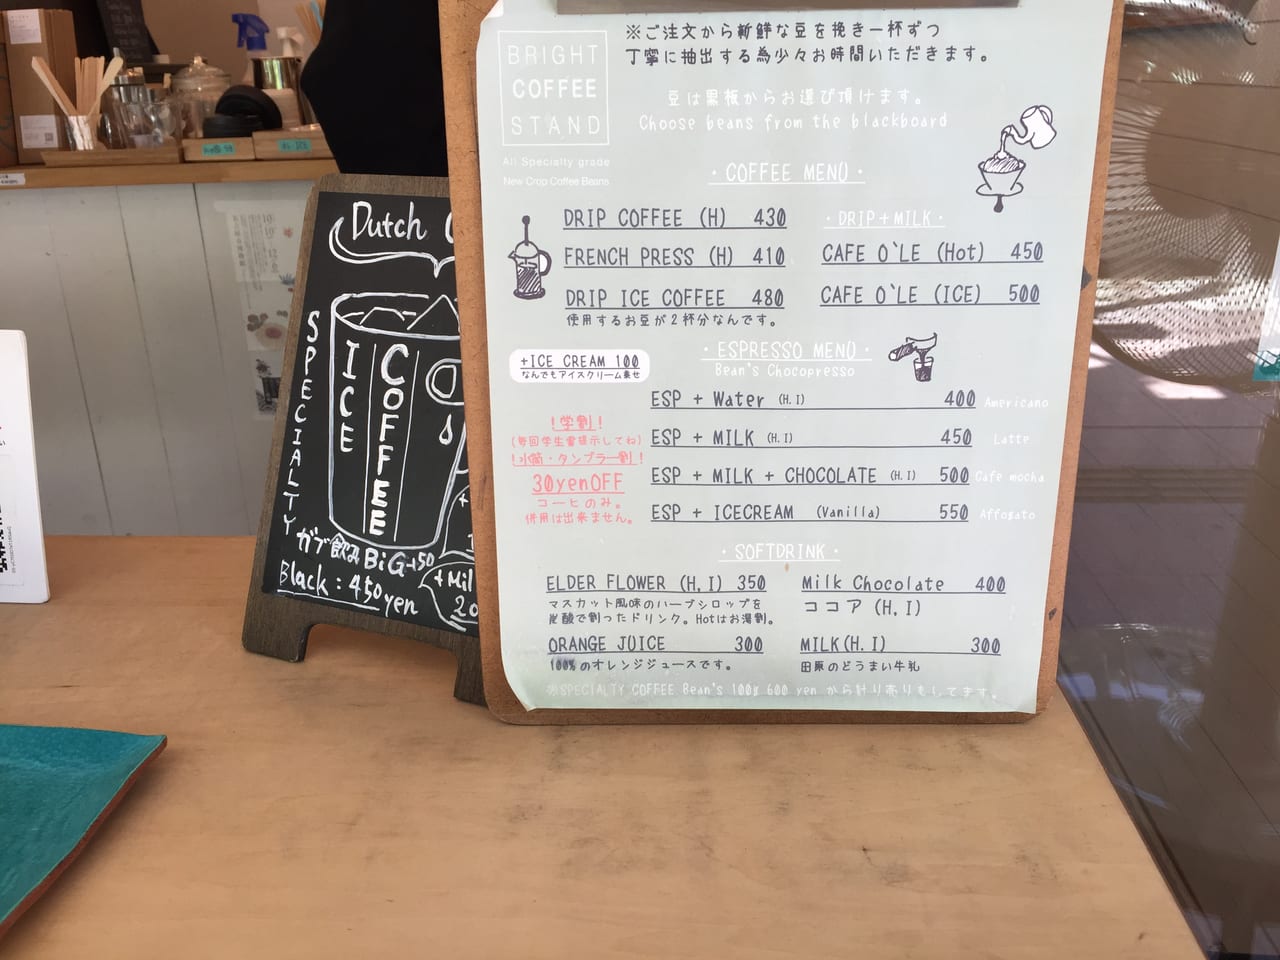 ※ご注文から新鮮な豆を挽き一杯ずつ
丁寧に抽出する為少々お時間いただきます。
BRIGHT
COFFEE
STAND
All Specialty grade
New Crop Coffee Beans
豆は黒板からお選び頂けます。
Choose beans from the blackboard
・COFFEE MENU・
DRIP COFFEE (H) 430
FRENCH PRESS (H) 410
DRIP ICE COFFEE 480
使用するお豆が2杯分なんです。
・DRIP+MILK・
CAFE O`LE (Hot) 450
CAFE O`LE (ICE) 500
+ICE CREAM 100
なんでもアイスクリーム乗せ
・ESPRESSO MENU・
Bean's Chocopresso
ESP + Water (H.I) 400 Americano
ESP + MILK (H.I) 450 Latte
ESP + MILK + CHOCOLATE (H.I) 500 Cafe mocha
ESP + ICECREAM (Vanilla) 550 Affogato
!学割!
(毎回学生書提示してね)
!水筒・タンブラー割!
30yenOFF
コーヒのみ。
併用は出来ません。
・SOFTDRINK・
ELDER FLOWER (H,I) 350
マスカット風味のハーブシロップを
炭酸で割ったドリンク。Hotはお湯割。
ORANGE JUICE 300
100%のオレンジジュースです。
Milk Chocolate 400
ココア (H,I)
MILK(H.I) 300
田原のどうまい牛乳
※SPECIALTY COFFEE Bean's 100g 600 yen から計り売りもしてます。
Dutch
SPECIALTY
ICE
COFFEE
ガブ飲みBiG+50
Black:450yen
+Mil